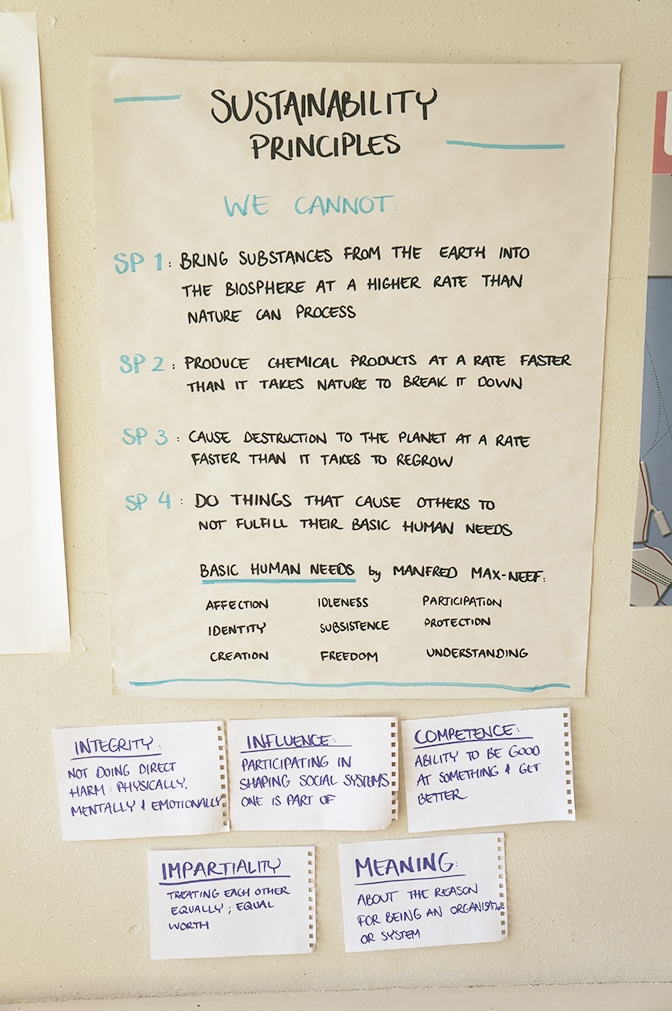 SUSTAINABILITY
PRINCIPLES
WE CANNOT:
SP 1: BRING SUBSTANCES FROM THE EARTH INTO
THE BIOSPHERE AT A HIGHER RATE THAN
NATURE CAN PROCESS
SP 2: PRODUCE CHEMICAL PRODUCTS AT A RATE FASTER
THAN IT TAKES NATURE TO BREAK IT DOWN
SP 3: CAUSE DESTRUCTION TO THE PLANET AT A RATE
FASTER THAN IT TAKES TO REGROW
SP 4: DO THINGS THAT CAUSE OTHERS TO
NOT FULFILL THEIR BASIC HUMAN NEEDS
BASIC HUMAN NEEDS by MANFRED MAX-NEEF:
AFFECTION IDLENESS PARTICIPATION
IDENTITY SUBSISTENCE PROTECTION
CREATION FREEDOM UNDERSTANDING
INTEGRITY:
NOT DOING DIRECT
HARM: PHYSICALLY,
MENTALLY & EMOTIONALLY
INFLUENCE:
PARTICIPATING IN
SHAPING SOCIAL SYSTEMS
ONE IS PART OF
COMPETENCE:
ABILITY TO BE GOOD
AT SOMETHING & GET
BETTER
IMPARTIALITY
TREATING EACH OTHER
EQUALLY; EQUAL
WORTH
MEANING:
ABOUT THE REASON
FOR BEING AN ORGANISATION
OR SYSTEM